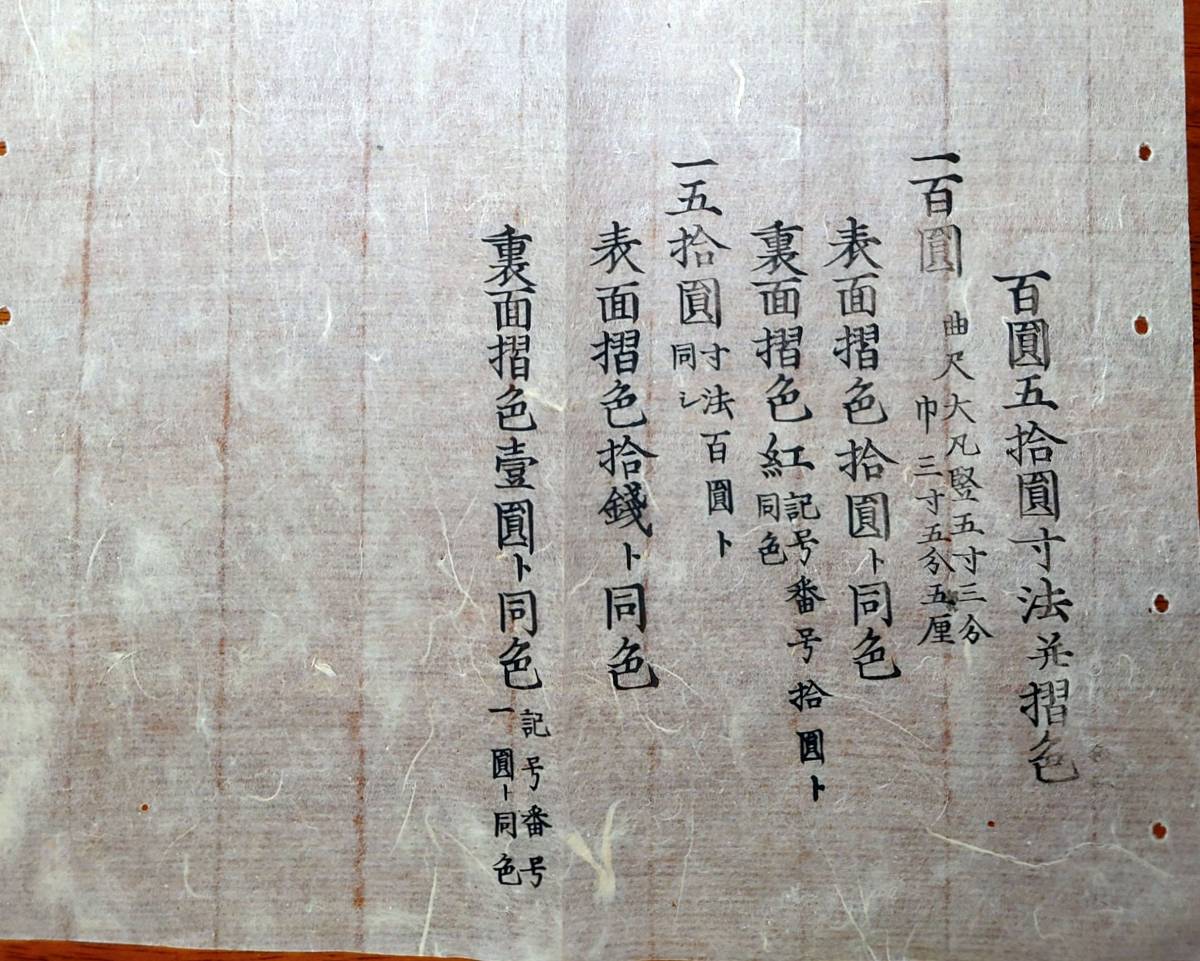 百圓五拾圓寸法并摺色
一百圓
曲尺大凡竪五寸三分
巾三寸五分五厘
表面摺色拾圓ト同色
裏面摺色紅
記号番号拾圓ト
同色
一五拾圓
寸法百圓ト
同シ
表面摺色拾錢ト同色
裏面摺色壹圓ト同色
記号番号
一圓ト同色